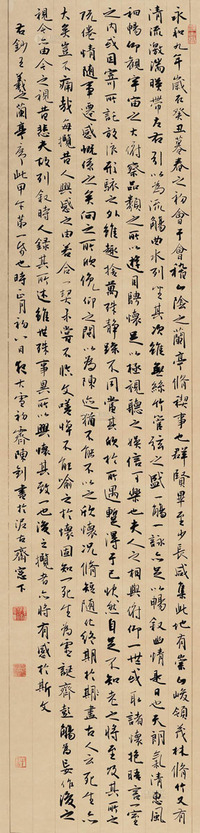 永和九年歲在癸丑暮春之初會于會稽山陰之蘭亭脩禊事也群賢畢至少長咸集此地有崇山峻領茂林脩竹又有
清流激湍暎帶左右引以為流觴曲水列坐其次雖無絲竹管弦之盛一觴一詠亦足以暢敘幽情是日也天朗氣清惠風
和暢仰觀宇宙之大俯察品類之盛所以遊目騁懷足以極視聽之娛信可樂也夫人之相與俯仰一世或取諸懷抱晤言一室
之內或因寄所託放浪形骸之外雖趣捨萬殊靜躁不同當其欣於所遇暫得於己快然自足不知老之將至及其所之
既倦情隨事遷感慨係之矣向之所欣俛仰之間以為陳迹猶不能不以之興懷況脩短隨化終期於盡古人云死生亦
大矣豈不痛哉每攬昔人興感之由若合一契未嘗不臨文嗟悼不能喻之於懷固知一死生為虛誕齊彭殤為妄作後之
視今亦今之視昔悲夫故列敘時人錄其所述雖世殊事異所以興懷其致一也後之攬者亦將有感於斯文
右鈔王羲之蘭亭序此甲午第一也時正月初八日大雪初霽陳書於泥古齋窗下